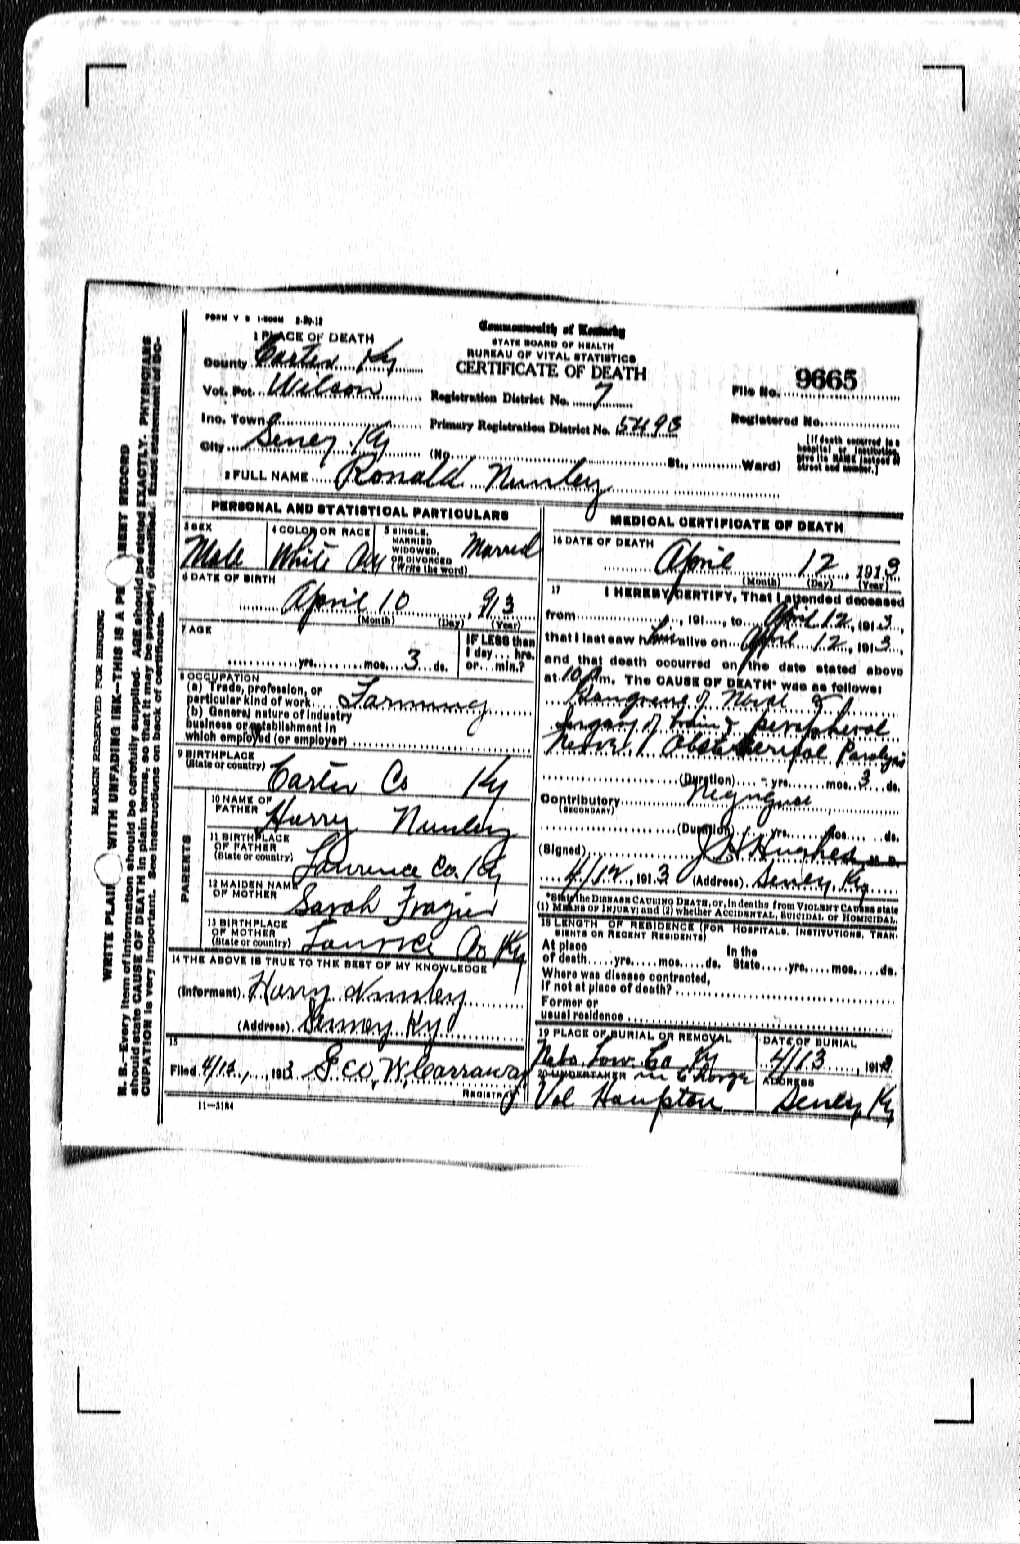 FORM V S 1-500M 2-20-12
Commonwealth of Kentucky
STATE BOARD OF HEALTH
BUREAU OF VITAL STATISTICS
CERTIFICATE OF DEATH
1 PLACE OF DEATH
County Carter Ky
Vot. Pct. Wilson
Registration District No. 7
File No. 9665
Inc. Town
Primary Registration District No. 5493
Registered No.
City Seney Ky
(No. St., Ward)
[If death occurred in a hospital or institution, give its NAME instead of street and number.]
2 FULL NAME Ronald Nunley
PERSONAL AND STATISTICAL PARTICULARS
3 SEX
Male
4 COLOR OR RACE
White
5 SINGLE, MARRIED, WIDOWED, OR DIVORCED (Write the word)
Married
6 DATE OF BIRTH
April 10, 913
(Month) (Day) (Year)
7 AGE
yrs. mos. 3 ds.
IF LESS than 1 day... hrs. or... min.?
8 OCCUPATION
(a) Trade, profession, or
particular kind of work Farming
(b) General nature of industry
business or establishment in
which employed (or employer)
9 BIRTHPLACE
(State or country) Carter Co Ky
PARENTS
10 NAME OF FATHER Harry Nunley
11 BIRTHPLACE OF FATHER (State or country) Lawrence Co. Ky
12 MAIDEN NAME OF MOTHER Sarah Frazier
13 BIRTHPLACE OF MOTHER (State or country) Co Ky
14 THE ABOVE IS TRUE TO THE BEST OF MY KNOWLEDGE
(Informant) Harry Nunley
(Address) Ky
15
Filed 4/12, 1913 Geo W. Carraway
REGISTRAR
11—3184
MEDICAL CERTIFICATE OF DEATH
16 DATE OF DEATH
April 12, 1913
(Month) (Day) (Year)
17 I HEREBY CERTIFY, That I attended deceased
from , 191..., to April 12, 1913,
that I last saw him alive on April 12, 1913,
and that death occurred on the date stated above
at 10 a m. The CAUSE OF DEATH* was as follows:
of
of brain & peripheral
Paralysis
(Duration) yrs. mos. 3 ds.
Contributory
(SECONDARY)
(Duration) yrs. mos. ds.
(Signed) J H Hughes M. D.
4/12, 1913 (Address) Seney Ky
*State the DISEASE CAUSING DEATH, or, in deaths from VIOLENT CAUSES state
(1) MEANS OF INJURY; and (2) whether ACCIDENTAL, SUICIDAL or HOMICIDAL.
18 LENGTH OF RESIDENCE (FOR HOSPITALS, INSTITUTIONS, TRANSIENTS OR RECENT RESIDENTS)
At place of death yrs. mos. ds. In the State yrs. mos. ds.
Where was disease contracted,
If not at place of death?
Former or
usual residence
19 PLACE OF BURIAL OR REMOVAL
Co Ky
DATE OF BURIAL
4/13, 1913
20 UNDERTAKER
Val Hampton
ADDRESS
Seney Ky
MARGIN RESERVED FOR BINDING
WRITE PLAINLY WITH UNFADING INK—THIS IS A PERMANENT RECORD
N. B.—Every item of information should be carefully supplied. AGE should be stated EXACTLY. PHYSICIANS
should state CAUSE OF DEATH in plain terms, so that it may be properly classified. Exact statement of OC-
CUPATION is very important. See instructions on back of certificate.